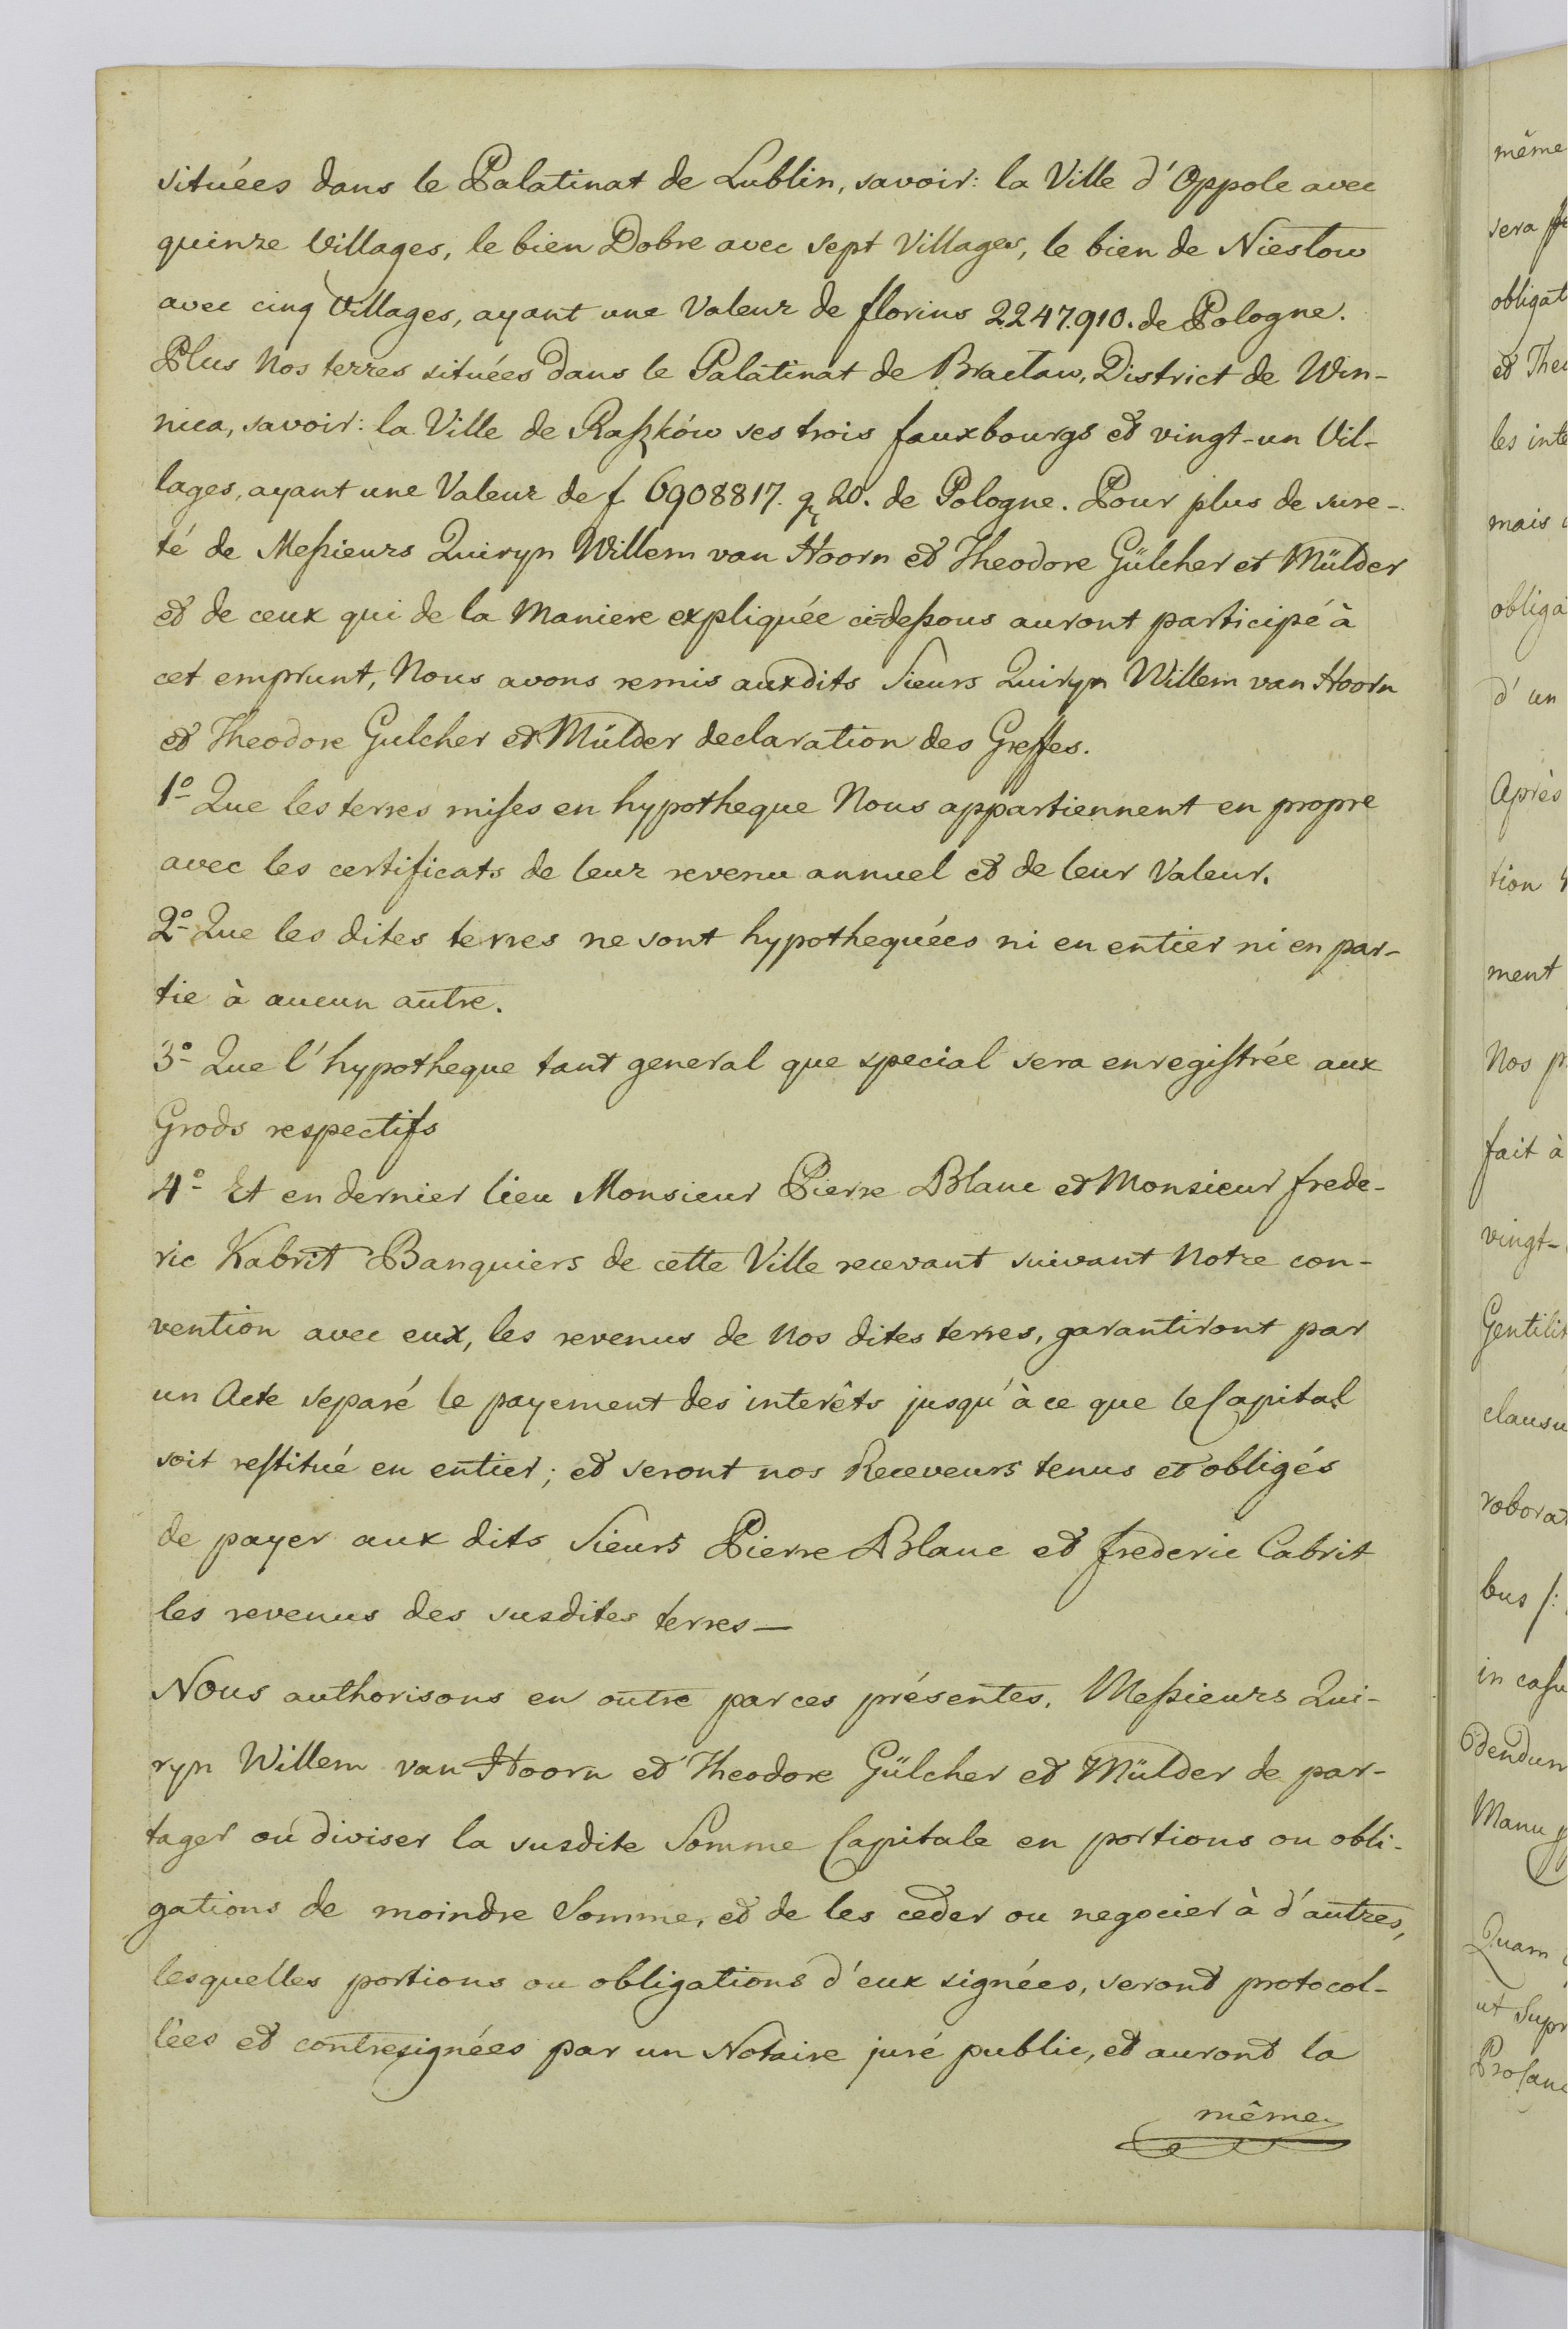 situées dans le Palatinat de Lublin, savoir: la Ville d'Oppole avec
quinze Villages, le bien Dobre avec sept Villages, le bien de Niestow
avec cinq Villages, ayant une Valeur de florins 2247.910. de Pologne.
Plus Nos terres situées dans le Palatinat de Bractaw, District de Win-
nica, savoir: la Ville de Raßków ses trois fauxbourgs et vingt-un Vil-
lages, ayant une Valeur de f 6908817. g 20. de Pologne. Pour plus de sure-
té de Meßieurs Quiryn Willem van Hoorn et Theodore Gülcher et Mülder
et de ceux qui de la Maniere expliquée ci-deßous auront participé à
cet emprunt, Nous avons remis auxdits Sieurs Quiryn Willem van Hoorn
et Theodore Gulcher et Mülder declaration des Greffes.
1º Que les terres mises en hypotheque Nous appartiennent en propre
avec les certificats de leur revenu annuel et de leur Valeur.
2º Que les dites terres ne sont hypothequées ni en entier ni en par-
tie à aucun autre.
3º Que l'hypotheque tant general que special sera enregistrée aux
Grods respectifs
4º Et en dernier lieu Monsieur Pierre Blanc et Monsieur frede-
ric Kabrit Banquiers de cette Ville recevant suivant Notre con-
vention avec eux, les revenus de Nos dites terres, garantiront par
un Acte separé le payement des interêts jusqu'à ce que le Capital
soit restitué en entier; et seront nos Receveurs tenus et obligés
de payer aux dits Sieurs Pierre Blanc et frederic Cabrit
les revenus des susdites terres—
Nous authorisons en outre par ces présentes, Meßieurs Qui-
ryn Willem van Hoorn et Theodore Gülcher et Mülder de par-
tager ou diviser la susdite Somme Capitale en portions ou obli-
gations de moindre Somme, et de les ceder ou negocier à d'autres,
lesquelles portions ou obligations d'eux signées, seront protocol-
lées et contresignées par un Notaire juré public, et auront la
même
même
sera
obligat
et Theo
les inte
mais
obliga
d'un
Après
tion
ment
Nos
fait à
vingt-
Gentilit
clausu
roborat
bus /:
in casu
dendum
Manu
Quam
ut Supr